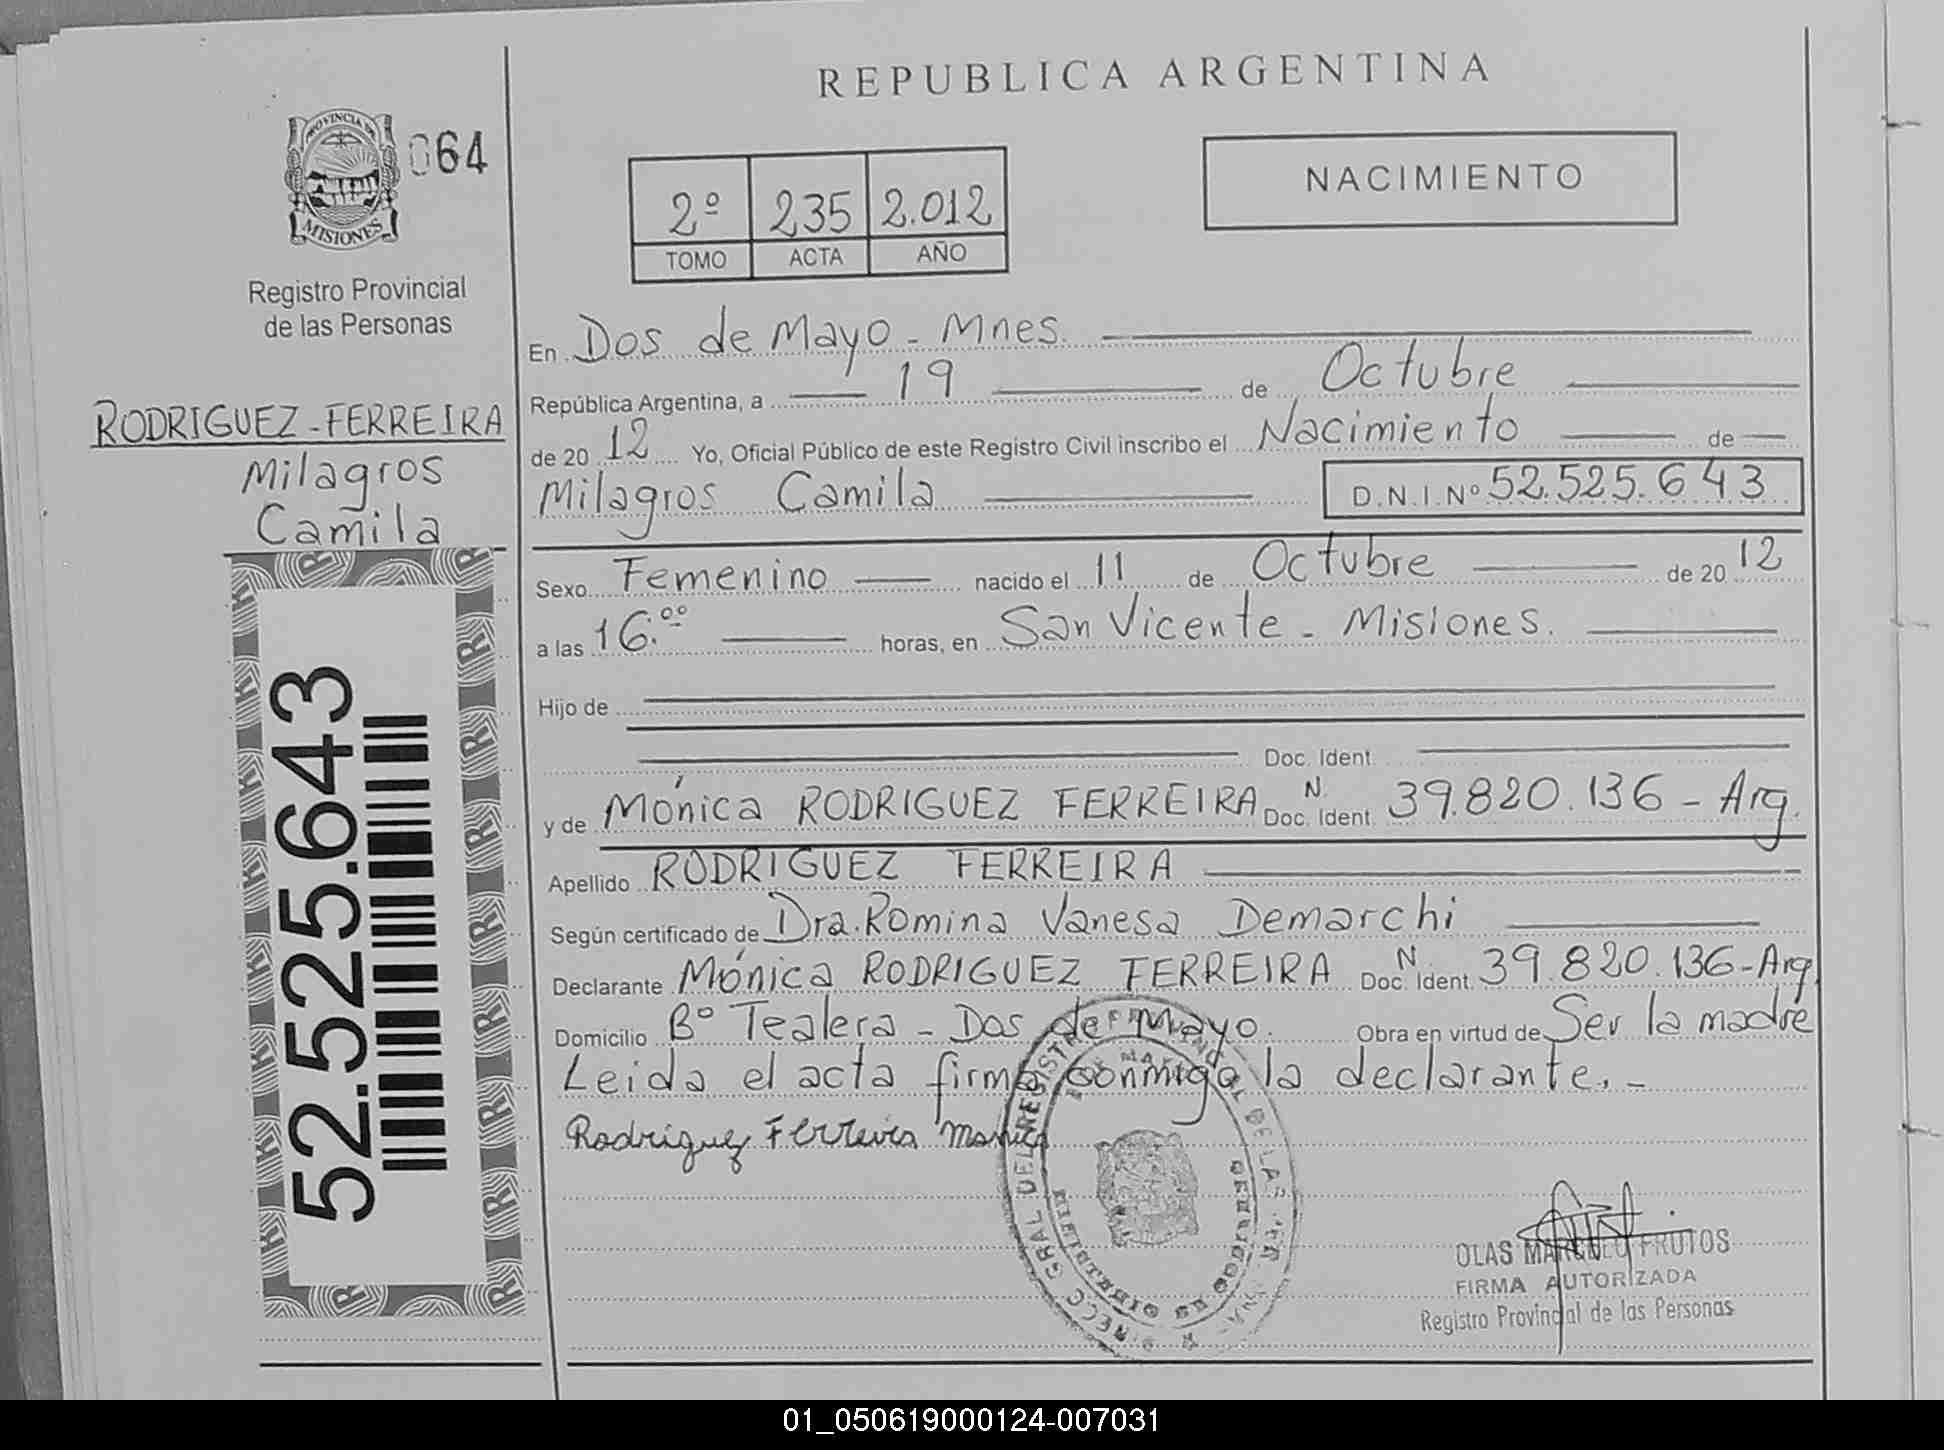 REPUBLICA ARGENTINA
PROVINCIA DE
MISIONES
064
Registro Provincial
de las Personas
2º 235 2.012
TOMO ACTA AÑO
NACIMIENTO
RODRIGUEZ-FERREIRA
Milagros
Camila
52.525.643
En Dos de Mayo - Mnes.
República Argentina, a 19 de Octubre
de 20 12 Yo, Oficial Público de este Registro Civil inscribo el Nacimiento de
Milagros Camila D.N.I.Nº 52.525.643
Sexo Femenino nacido el 11 de Octubre de 20 12
a las 16.ºº horas, en San Vicente - Misiones.
Hijo de
Doc. Ident.
y de Mónica RODRIGUEZ FERREIRA Doc. N. Ident. 39.820.136 - Arg.
Apellido RODRIGUEZ FERREIRA
Según certificado de Dra. Romina Vanesa Demarchi
Declarante Mónica RODRIGUEZ FERREIRA Doc. N. Ident. 39.820.136-Arg
Domicilio Bº Tealera - Dos de Mayo. Obra en virtud de Ser la madre
Leida el acta firma conmigo la declarante. -
Rodriguez Ferreira Monica
OLAS MARCELO FRUTOS
FIRMA AUTORIZADA
Registro Provincial de las Personas
01_050619000124-007031